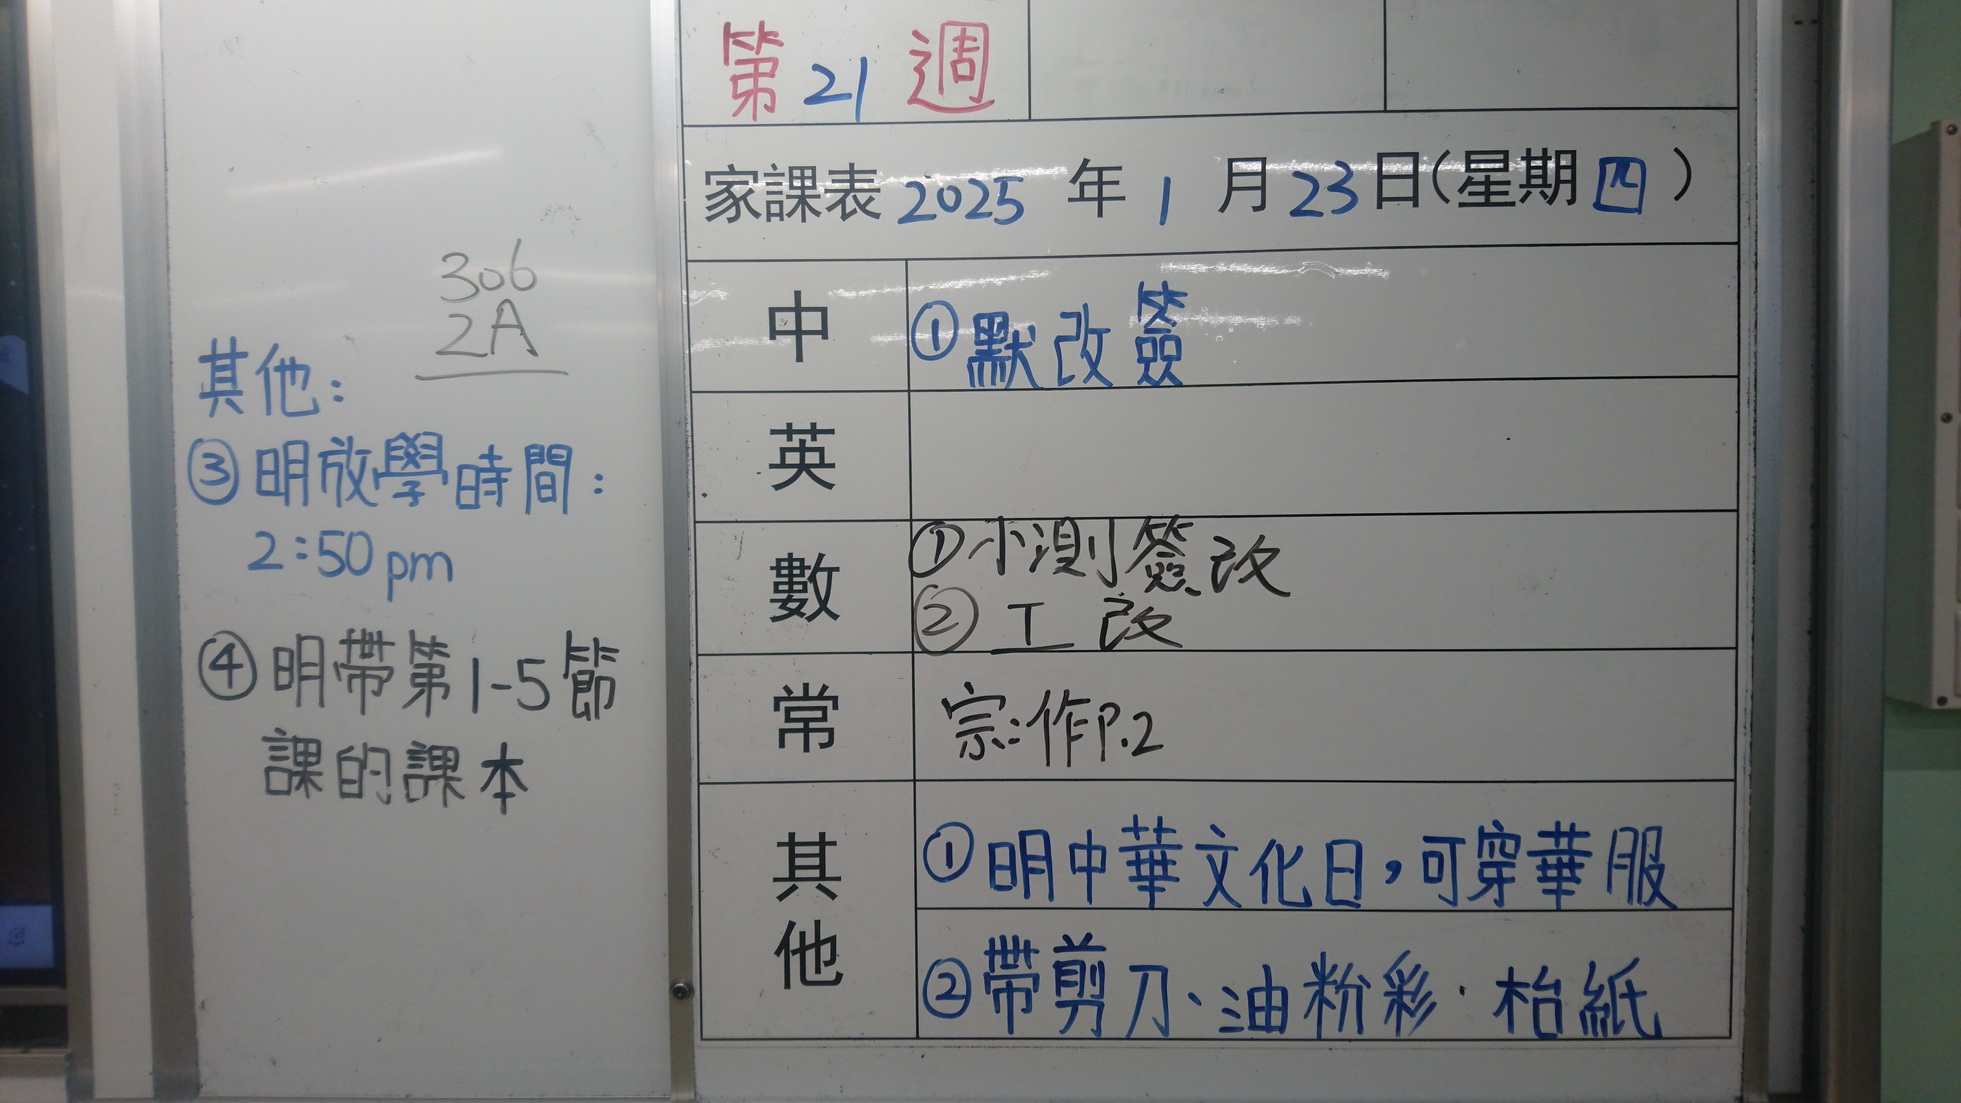 第21週
家課表2025年1月23日(星期四)
中
①默改簽
英
數
①小測簽改
②工改
常
宗:作P.2
其他
①明中華文化日,可穿華服
②帶剪刀、油粉彩、枱紙
306
2A
其他:
③明放學時間:
2:50pm
④明帶第1-5節
課的課本